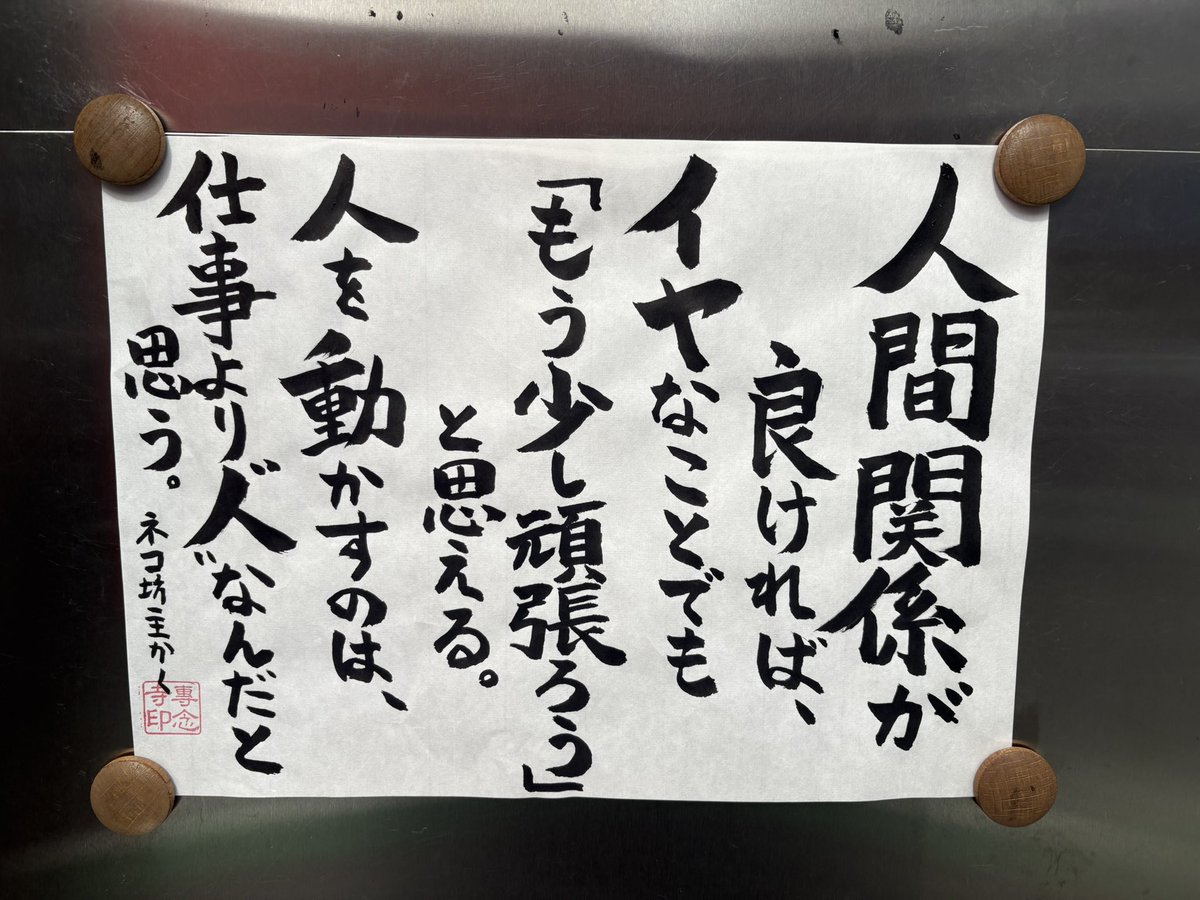 人間関係が
良ければ、
イヤなことでも
「もう少し頑張ろう」
と思える。
人を動かすのは、
仕事より〝人〟なんだと
思う。
ネコ坊主かく
專念
寺印